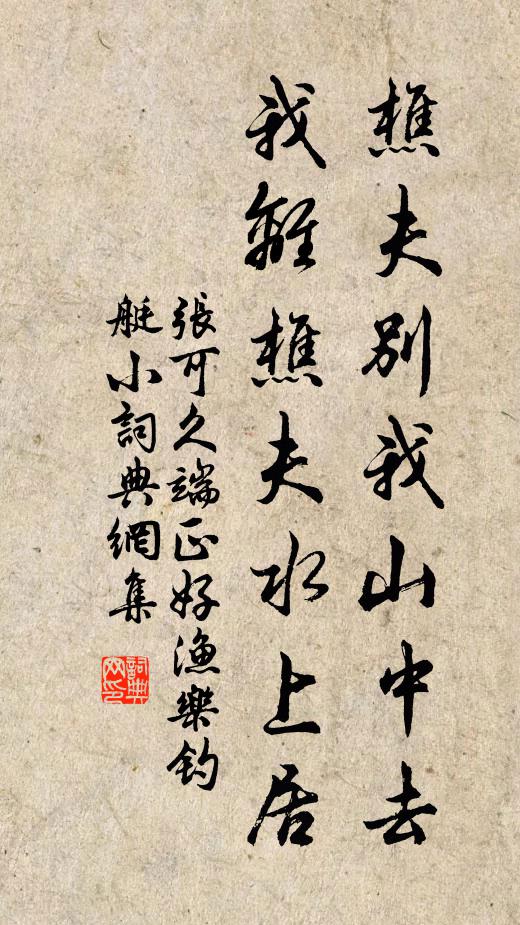 樵夫別我山中去
我離樵夫水上居
張可久端正好漁樂釣
艇小詞典網集
詞典
网印